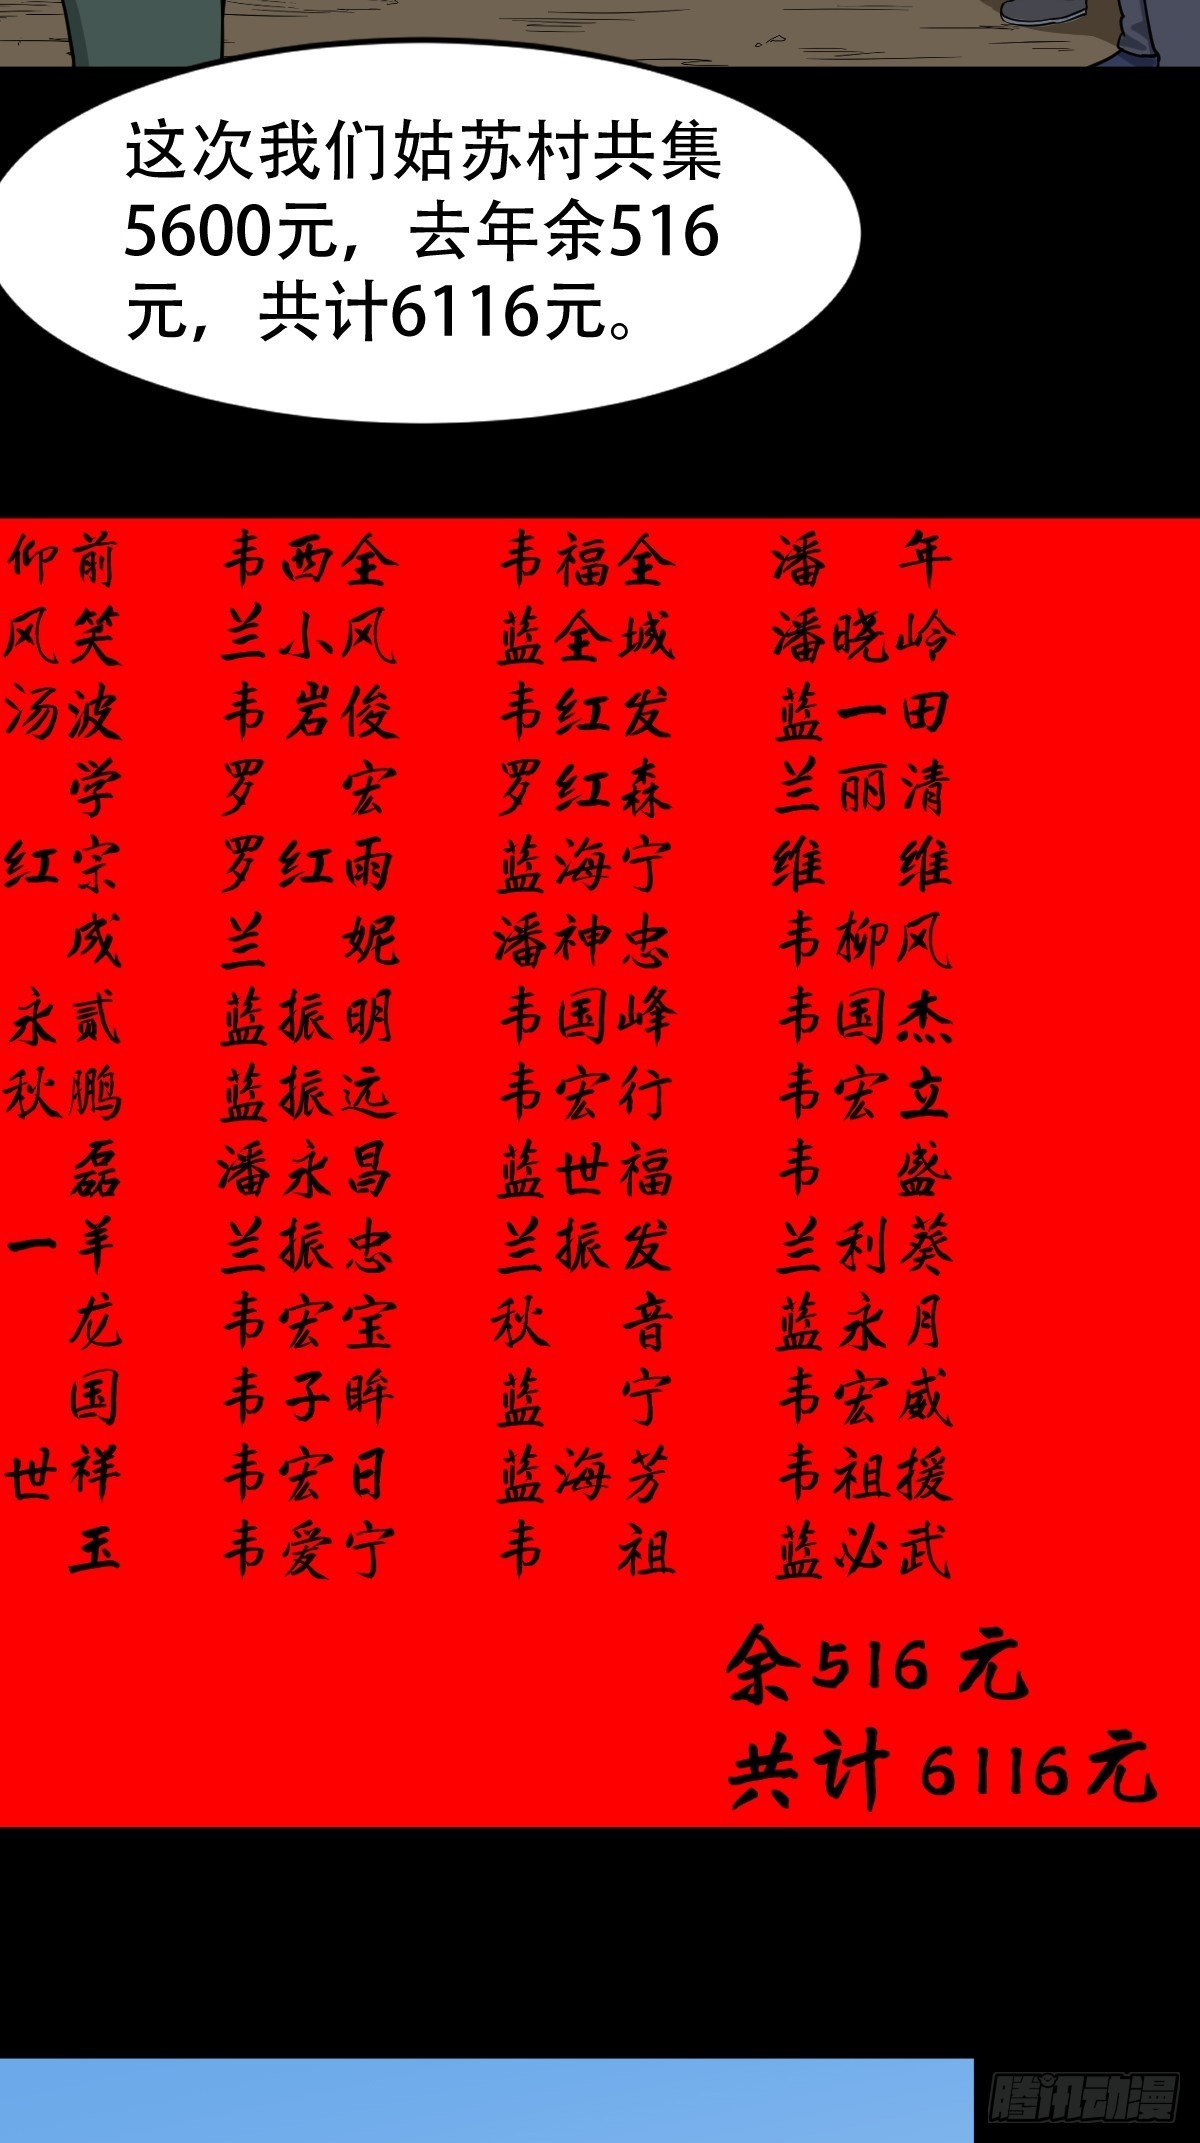 这次我们姑苏村共集
5600元，去年余516
元，共计6116元。
仰前 韦西全 韦福全 潘年
风笑 兰小风 蓝全城 潘晓岭
汤波 韦岩俊 韦红发 蓝一田
学 罗宏 罗红森 兰丽清
红宗 罗红雨 蓝海宁 维维
成 兰妮 潘神忠 韦柳风
永贰 蓝振明 韦国峰 韦国杰
秋鹏 蓝振远 韦宏行 韦宏立
磊 潘永昌 蓝世福 韦盛
一羊 兰振忠 兰振发 兰利葵
龙 韦宏宝 秋音 蓝永月
国 韦子眸 蓝宁 韦宏威
世祥 韦宏日 蓝海芳 韦祖援
玉 韦爱宁 韦祖 蓝必武
余516元
共计6116元
腾讯动漫